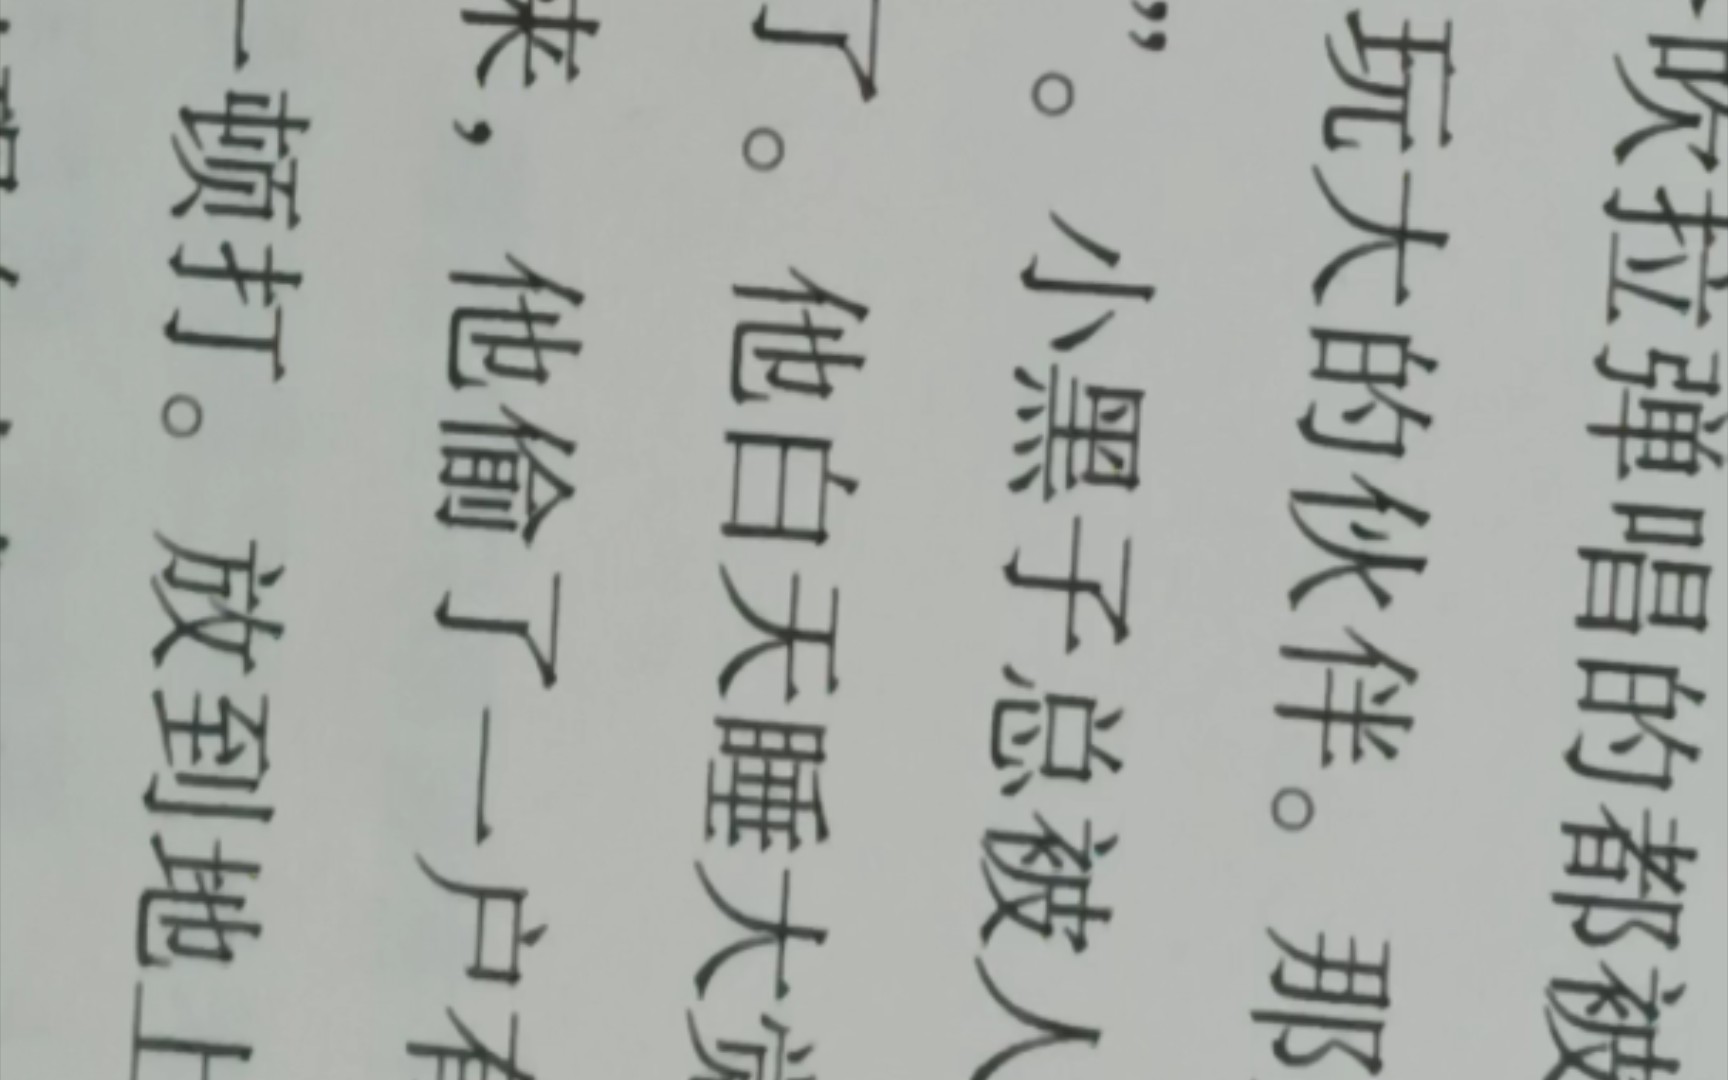 吹拉弹唱的都被
玩大的伙伴。那
”。小黑子总被人
了。他白天睡大觉
来，他偷了一户有
一顿打。放到地上